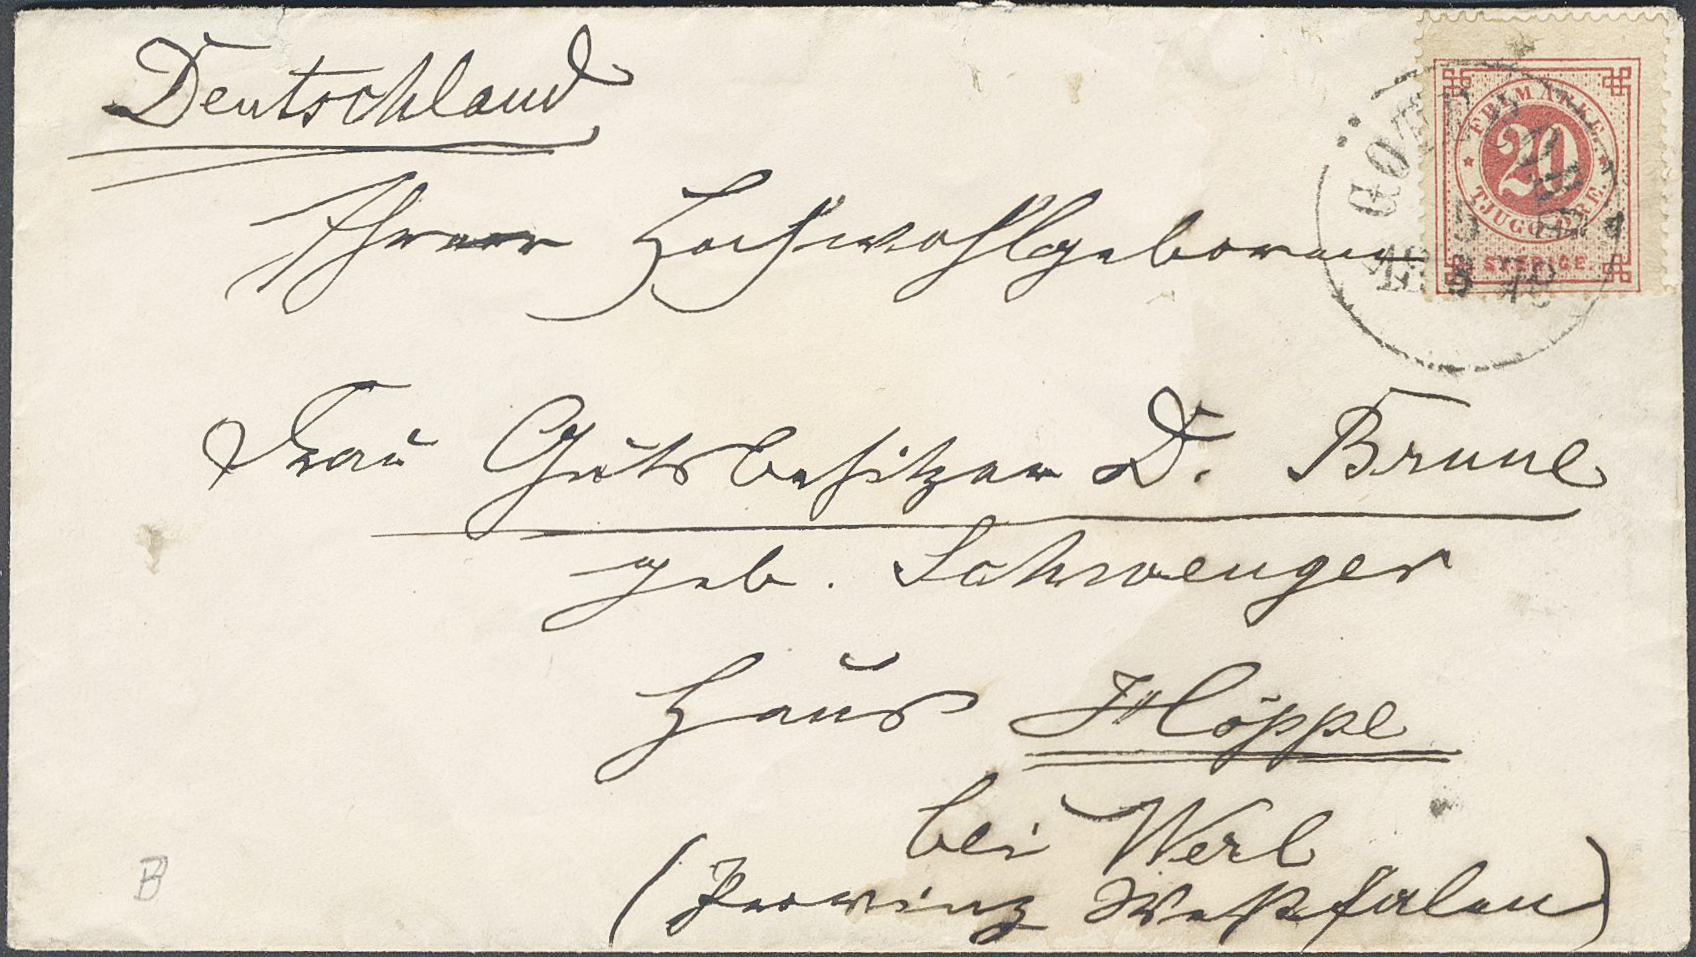 Deutschland
Ihrer Hochwohlgeboren
Frau Gutsbesitzer D. Brune
geb. Schwenger
Haus Höppe
bei Werl
(Provinz Westfalen)
FRIMÄRKE
20
TJUGO ÖRE.
SVERIGE.
B